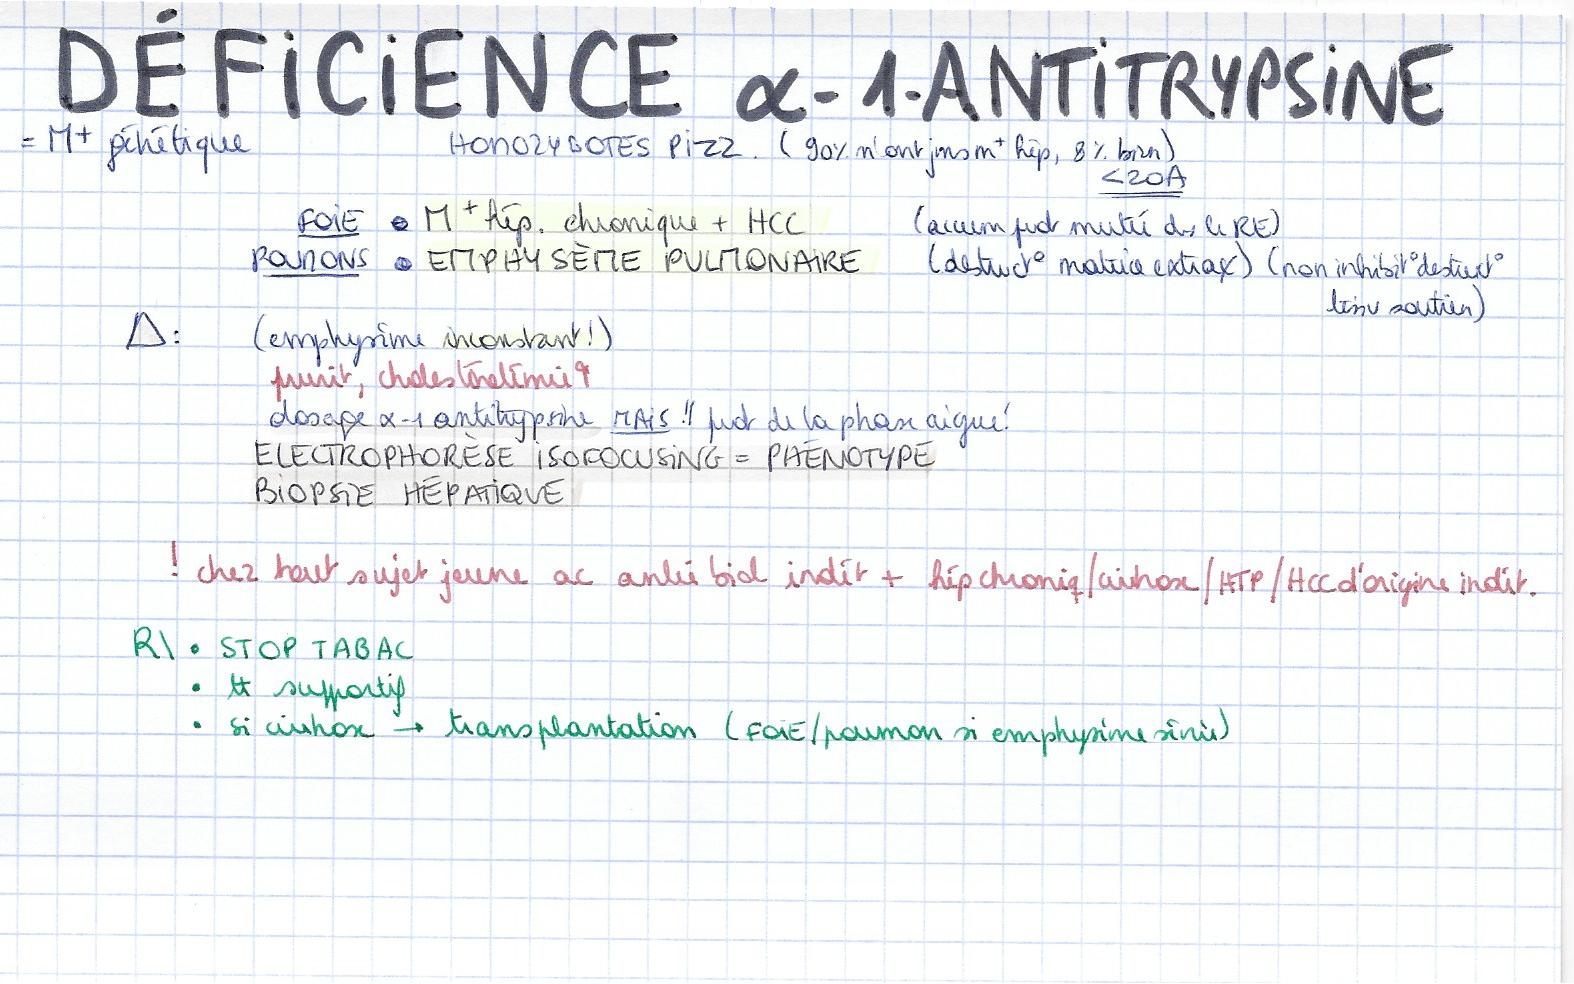 DÉFICIENCE α-1-ANTITRYPSINE
= M+ génétique HOMOZYGOTES PiZZ. (90% n'ont jms m+ hép, 8% bien)
<20A
FOIE • M+ hép. chronique + HCC (accum prdt muté ds le RE)
POUMONS • EMPHYSÈME PULMONAIRE (destruct° matrice extrax) (non inhibit° destruct°
tissu soutien)
Δ: (emphysème inconstant!)
prurit, cholestérolémie
dosage α-1 antitrypsine MAIS !! prdt de la phase aigue!
ELECTROPHORÈSE ISOFOCUSING = PHÉNOTYPE
BIOPSIE HÉPATIQUE
! chez tout sujet jeune ac antéc bid indét + hép chroniq/cirrhose/HTP/HCC d'origine indét.
R\ • STOP TABAC
• tt supportif
• si cirrhose → transplantation (FOIE/poumon si emphysème sévère)